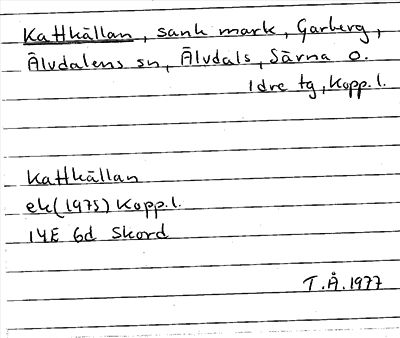 Kattkällan, sank mark, Garberg,
Älvdalens sn, Älvdals, Särna o.
Idre tg, Kopp.l.
Kattkällan
ek(1975) Kopp.l.
14E 6d Skord
T.Å.1977